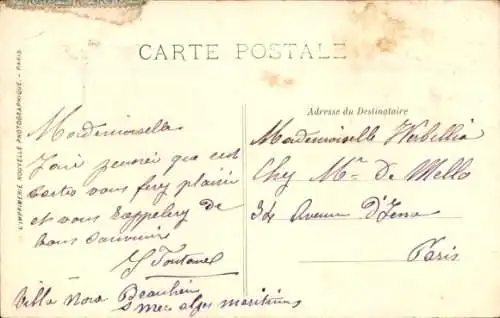 CARTE POSTALE
L'IMPRIMERIE NOUVELLE PHOTOGRAPHIQUE. - PARIS.
Mademoiselle
J'ai que cest
vous fery plaisir
et vous Rappelery de
bons Souvenirs
J Fontanel
Villa Nora Beaulieu
s mer alpes maritimes
Adresse du Destinataire
Mademoiselle Herbillia
Chey Mr De Mello
34 Avenue D'Jena
Paris